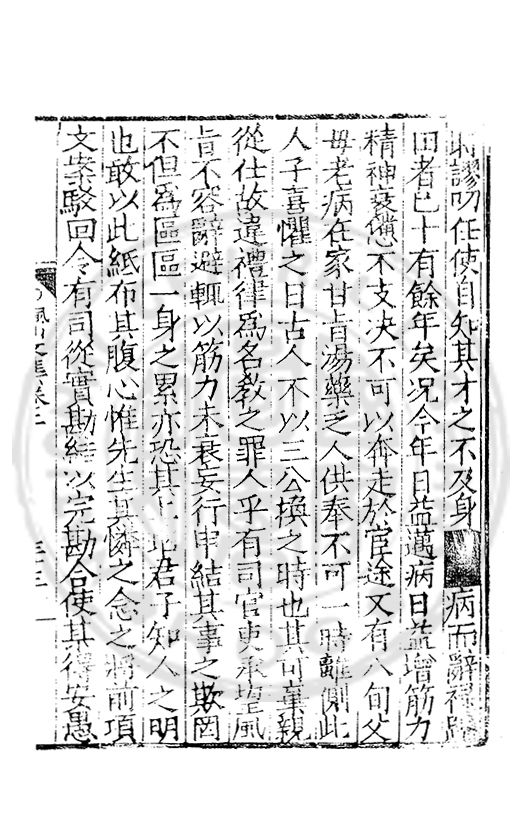 時謬叨任使自知其才之不及身病而辭祿歸
田者已十有餘年矣况今年日益邁病日益增筋力
精神衰憊不支决不可以奔走於宦途又有八旬父
母老病在家甘旨湯藥乏人供奉不可一時離側此
人子喜懼之日古人不以三公換之時也其可棄親
從仕故違禮律爲名教之罪人乎有司官吏承望風
旨不容辭避輒以筋力未衰妄行申結其事之欺罔
不但爲區區一身之累亦恐其上地君子知人之明
也敢以此紙布其腹心惟先生其憐之念之將前項
文案駁回令有司從實勘結以完勘合使某得安愚
文集卷三